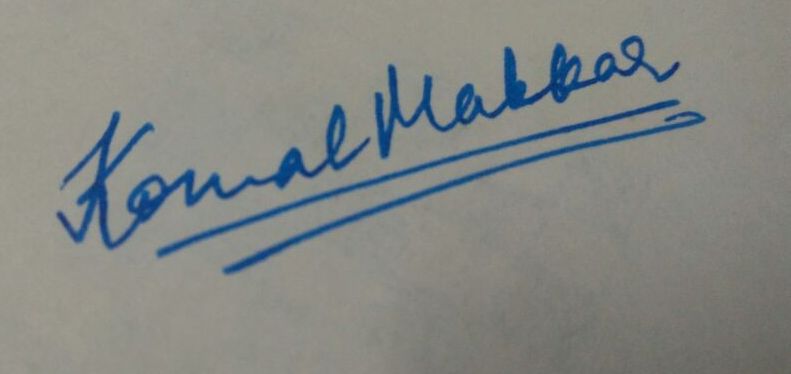 Komal Makkar